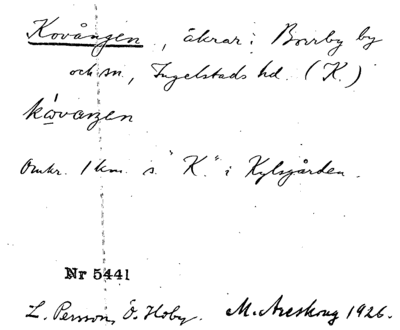 Kovången, åkrar i Borrby by
och sn, Ingelstads hd. (K.)
Omkr. 1 km. s. "K." i Kylsgården.
Nr 5441
L. Persson, Ö. Hoby. M. Areskoug 1926.